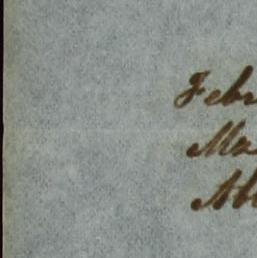 Febr
Ma
Ab